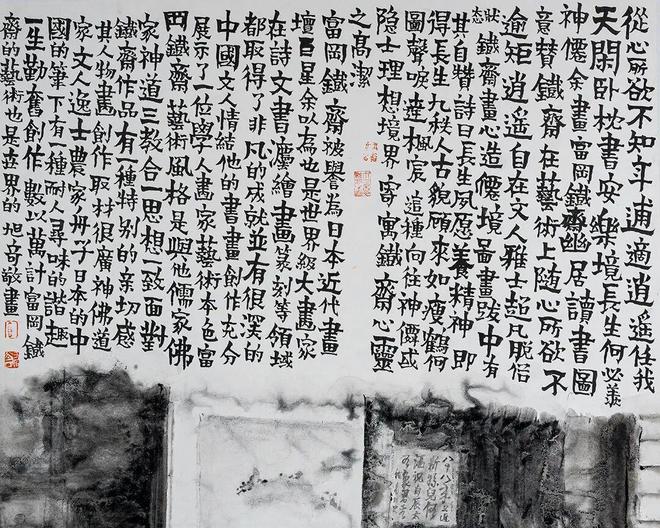 從心所欲不知年適逍遥任我
天閑卧枕書安樂境長生何必羨
神僊余畫富岡鐵齋幽居讀書圖
意贊鐵齋在藝術上随心所欲不
逾矩逍遥自在文人雅士超凡脱俗
狀態鐵齋畫心造僊境圖畫跋中有
其自赞詩曰長生夙愿養精神即
得長生九秩人古貌顧來如瘦鶴何
圖聲唳達楓宸這種向往神僊或
隐士理想境界寄寓鐵齋心靈
之高潔
富岡鐵齋被譽為日本近代畫
壇巨星余以為也是世界級大畫家
在詩文書灋繪畫篆刻等領域
都取得了非凡的成就並有很深的
中國文人情結他的書畫創作充分
展示了一位學人畫家藝術本色富
岡鐵齋藝術風格是與他儒家佛
家神道三教合一思想一致面對
鐵齋作品有一種特别的亲切感
其人物畫創作取材很廣神佛道
家文人逸士農家子日本的中
國的筆下有一種耐人尋味的諧趣
一生勤奮創作數以萬計富岡鐵
齋的藝術也是世界的地音敬畫